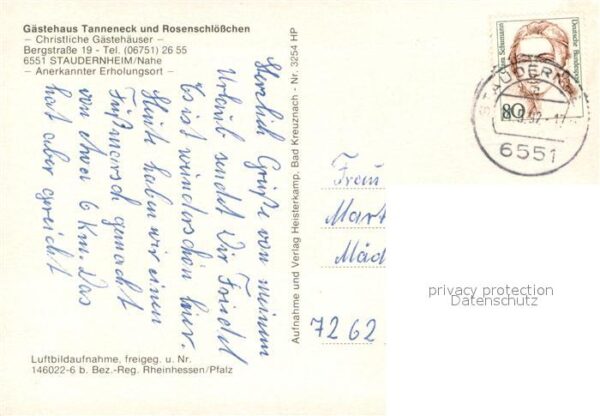 Gästehaus Tanneneck und Rosenschlößchen
– Christliche Gästehäuser –
Bergstraße 19 - Tel. (06751) 26 55
6551 STAUDERNHEIM/Nahe
– Anerkannter Erholungsort –
Herzlich Grüße von meinem
Urlaub sendet Dir Friedel
Es ist wunderschön hier.
Heute haben wir einen
Fußmarsch gemacht
von etwa 6 Km. Das
hat aber gereicht
Luftbildaufnahme, freigeg. u. Nr.
146022-6 b. Bez.-Reg. Rheinhessen/Pfalz
Aufnahme und Verlag Heisterkamp, Bad Kreuznach - Nr. 3254 HP
Schumann
Deutsche Bundespost
80
STAUDERN
6551
Frau
Mart
Mäd
7262
privacy protection
Datenschutz